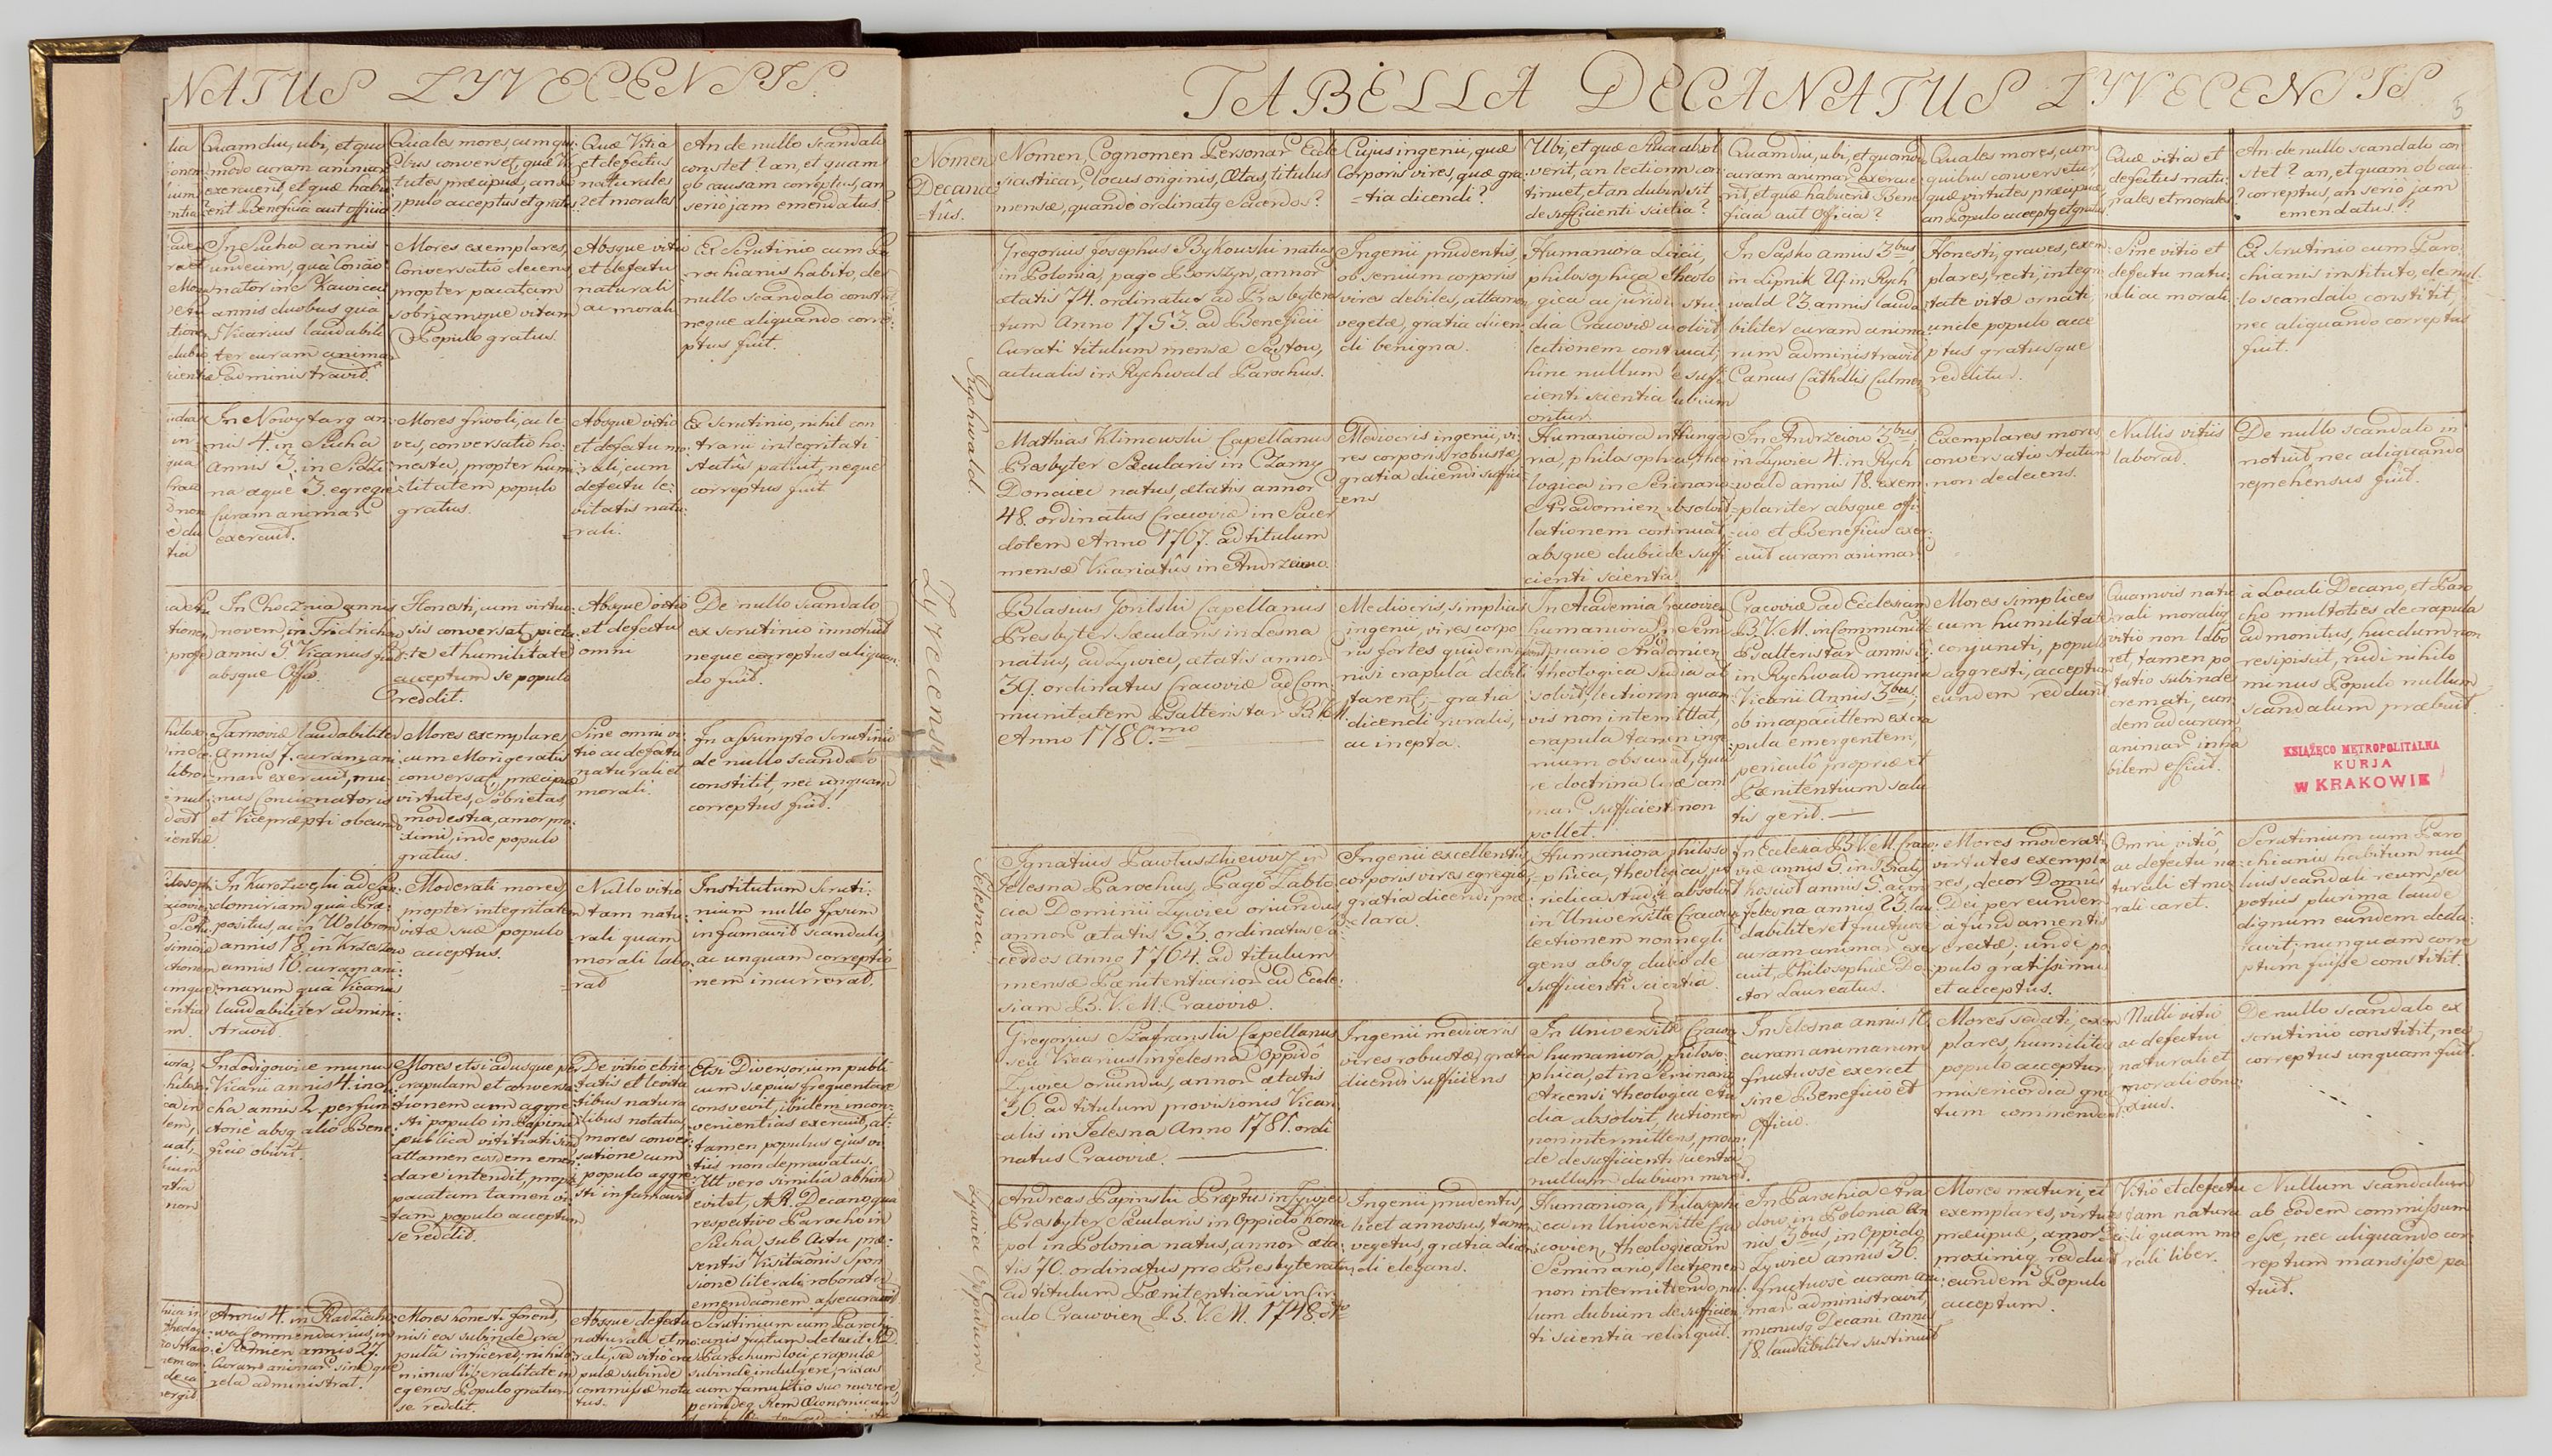 NATUS ZYVECENSIS.
Quamdiu, ubi, et quo
modo curam animar
exercuerit, et quæ habu
erit Beneficia aut officia
Quales mores, cum qui
bus conversetur, quæ Vir
tutes præcipuæ, an a
populo acceptus et gratus?
Quæ Vitia
et defectus
naturales
et morales
An de nullo scandalo
constet? an, et quam
ob causam correptus, an
serio jam emendatus?
In Sucha annis
undecim, quà Concio
nator in Kawicea
annis duobus quà
Vicarius laudabili
ter curam animar
administravit.
Mores exemplares,
Conversatio decens,
propter pacatam
sobriamque vitam
Populo gratus.
Absque vitio
et defectu
naturali
ac morali
Ex Scrutinio cum Pa
rochianis habito, de
nullo scandalo constat,
neque aliquando corre
ptus fuit.
In Nowytarg an
nis 4. in Sucha
annis 3. in
na æquè 3. egregiè
Curam animar
exercuit.
Mores frivoli, ac le
ves, conversatio ho
nesta, propter humi
litatem populo
gratus.
Absque vitio
et defectu mo
rali, cum
defectu le
vitatis natu
rali.
Ex scrutinio, nihil con
trarii integritati
statûs patuit, neque
correptus fuit.
In Chocznia annis
novem, in Fridrichau
annis 5 Vicarius fuit
absque Offo.
Honesti, cum virtuo
sis conversat, pieta
te et humilitate
acceptum se populo
reddit.
Absque vitio
et defectu
omni
De nullo scandalo
ex scrutinio innotuit
neque correptus aliquan
do fuit.
Tarnoviæ laudabiliter
annis 7. curam ani
mar exercuit, mu
nus Concionatoris
et Vicepræpti obeundo
Mores exemplares
cum Morigeratis
conversat, præcipuæ
virtutes, Sobrietas,
modestia, amor pro
ximi, inde populo
gratus.
Sine omni vi
tio ac defectu
naturali et
morali.
In assumpto scrutinio
de nullo scandalo
constitit, nec unquam
correptus fuit.
In Kurozwęki ad San
domiriam quà Præ
positus, ac in Wolbrom
annis 18, in Krzeszow
annis 16. curam ani
marum quà Vicarius
laudabiliter admini
stravit
Moderati mores,
propter integritatem
vitæ suæ populo
acceptus.
Nullo vitio
tam natu
rali quam
morali labo
rat
Institutum Scruti
nium nullo Ipsum
infamavit scandalo,
ac unquam correptio
nem incurrerat.
munus
Vicarii annis 4. in
cha annis 2. perfun
ctoriè absq alio Bene
ficio obivit.
Mores etsi adusque per
crapulam et conversa
tionem cum aggre
sti populo in
publica vitiati sint
attamen eosdem emen
dare intendit, propter
pacatam tamen vi
tam populo acceptum
se reddit.
De vitio ebrie
tatis et levita
tibus natura
libus notatus,
mores conver
satione cum
populo aggre
sti infuscavit
Etsi Diversorium publi
cum sæpius frequentare
consvevit, ibidem incon
venientias exercuit, at
tamen populus ejus vi
tiis non depravatus.
Ut vero similia abhinc
evitet, A.R. Decano, qua
respectivo Parocho in
Sucha, sub Actu præ
sentis Visitaonis Spon
sione literali roborata
emendaonem assecuravit
Annis 4. in Radzicho
wa Commendarius, in
Slemien annis 27.
curam animar sine quæ
rela administrat.
Mores honesti forent,
nisi eos subinde cra
pula inficeret, nihilo
minus liberalitate in
egenos Populo gratum
se reddit.
Absque defectu
naturali et mo
rali, sed vitio cra
pulæ subinde
commissæ nota
tus.
Scrutinium cum Paroch
anis factum detexit A.R.D.
Parochum loci, crapulæ
subinde indulgere, rixas
cum famulitio suo movere,
perindeq Rem Œconomicam
TABELLA DECANATUS ZYVECENSIS
5
Nomen
Decana
tûs.
Nomen, Cognomen Personar Eccle
siasticar, locus originis, Ætas, titulus
mensæ, quando ordinatq Sacerdos?
Cujus ingenii, quæ
Corporis vires, quæ gra
tia dicendi?
Ubi, et quæ Studia absol
verit, an lectionem con
tinuet, et an dubium sit
de sufficienti scientia?
Quamdiu, ubi, et quomodo
curam animar exercue
rit, et quæ habuerit Bene
ficia aut Officia?
Quales mores, cum
quibus conversetur,
quæ virtutes præcipuæ,
an Populo acceptq et gratus
Quæ vitia et
defectus natu
rales et morales
An de nullo scandalo con
stet? an, et quam ob cau
? correptus, an serio jam
emendatus?
Zyvecensis
Rychwald.
Gregorius Josephus Bykowski natus
in Polonia, pago Borszyn, annor
ætatis 74. ordinatus ad Presbytera
tum Anno 1753. ad Beneficii
Curati titulum mensæ Sastow,
actualis in Rychwald Parochus.
Ingenii prudentis,
ob senium corporis
vires debiles, attamen
vegetæ, gratia dicen
di benigna.
Humaniora
philosophica theolo
gica ac juridi stu
dia Cracoviæ absolvit
lectionem continuat,
hinc nullum de suffi
cienti scientia dubium
oritur.
In Sasko annis 3bus,
in Lipnik 29. in Rych
wald 23. annis lauda
biliter curam anima
rum administravit
Canus Cathdlis Culmen
Honesti, graves, exem
plares, recti, integri
tate vitæ ornati,
unde populo acce
ptus gratusque
redditur.
Sine vitio et
defectu natu
rali ac morali
Ex Scrutinio cum Paro
chianis instituto, de nul
lo scandalo constitit,
nec aliquando correptus
fuit.
Mathias Klimowski Capellanus
Presbyter Sæcularis in Czarny
Donaiec natus, ætatis annor
48. ordinatus Cracoviæ in Sacer
dotem Anno 1767. ad titulum
mensæ Vicariatûs in Andrzeiow.
Mediocris ingenii, vi
res corporis robustæ
gratia dicendi suffici
ens
Humaniora in Hunga
ria, philosophica, theo
logica in Seminario
Stradomien absolvit,
lectionem continuat
absque dubio de suffi
cienti scientia
In Andrzeiow 3bus,
in Zywiec 4. in Rych
wald annis 18. exem
plariter absque offi
cio et Beneficio exer
cuit curam animar
Exemplares mores
conversatio statum
non dedecens.
Nullis vitiis
laborat.
De nullo scandalo in
notuit, nec aliquando
reprehensus fuit.
Blasius Gorilski Capellanus
Presbyter Sæcularis in Lesna
natus, ad Zywiec, ætatis annor
39. ordinatus Cracoviæ ad Com
munitatem Psalteristar B.V.M.
Anno 1780.mo
Mediocris, simplicis
ingenii, vires corpo
ris fortes quidem,
nisi crapulâ debili
tarent, gratia
dicendi ruralis,
ac inepta.
In Academia Cracovien
humaniora, in Semi
nario Stradomien
theologica studia ab
solvit, lectionem quam
vis non intermittat,
crapula tamen inge
nium obscurat, qua
re doctrina curæ ani
mar sufficienti non
pollet.
Cracoviæ ad Ecclesiam
B.V.M. in Communitte
Psalteristar annis 6.
in Rychwald munia
Vicarii Annis 3bus,
ob incapacittem ex cra
pula emergentem,
periculô propriæ et
Pænitentium salu
tis gerit.
Mores simplices
cum humilitate
conjuncti, populo
aggresti, acceptum
eundem reddunt
Quamvis natu
rali moraliq
vitio non labo
ret, tamen po
tatio subinde
cremati, eun
dem ad curam
animar inha
bilem efficit.
à Locali Decano, et Paro
cho multoties de crapula
admonitus, hucdum non
resipiscit, rudi nihilo
minus Populo nullum
Scandalum præbuit.
KSIĄŻĘCO METROPOLITALNA
KURJA
W KRAKOWIE
Jelesna.
Ignatius Pawluszkiewicz in
Jelesna Parochus, Pago Zabło
cia Dominii Zywiec oriundus
annor ætatis 53. ordinatus Sa
cerdos Anno 1764. ad titulum
mensæ Pænitentiarior ad Eccle
siam B.V.M. Cracoviæ.
Ingenii excellentis,
corporis vires egregiæ,
gratia dicendi præ
clara.
Humaniora, philoso
phica, theologica, ju
ridica studia absolvit
in Universitte Cracovien
lectionem non negli
gens absq dubio de
sufficienti scientia.
In Ecclesia B.V.M. Craco
viæ annis 5. in Biały
kościoł annis 5. ac in
Jelesna annis 23. lau
dabiliter et fructuose
curam animar exer
cuit, Philosophiæ Do
ctor Laureatus.
Mores moderati,
virtutes exempla
res, decor Domûs
Dei per eundem
à fundamentis
erectæ; unde po
pulo gratissimus
et acceptus.
Omni vitiô,
ac defectu na
turali et mo
rali caret.
Scrutinium cum Paro
chianis habitum nul
lius scandali reum, sed
potius plurima laude
dignum eundem decla
ravit, nunquam corre
ptum fuisse constitit.
Gregorius Szafranski Capellanus
seu Vicarius in Jelesna Oppidô
Zywiec oriundus, annor ætatis
36. ad titulum provisionis Vicari
alis in Jelesna Anno 1781. ordi
natus Cracoviæ.
Ingenii mediocris
vires robustæ, gratia
dicendi sufficiens
In Universitte Cracov
humaniora, philoso
phica, et in Seminario
Arcensi theologica stu
dia absolvit, lectionem
non intermittens, proin
de de sufficienti scientia
nullum dubium movet.
In Jelesna annis 10
curam animarum
fructuose exercet
sine Beneficio et
Officio.
Mores sedati, exem
plares, humilitas
populo acceptum
misericordia gra
tum commendat.
Nulli vitio
ac defectui
naturali et
morali obno
xius.
De nullo scandalo ex
scrutinio constitit, nec
correptus unquam fuit.
Zywiec Oppidum.
Andreas Papinski Præptus in Zywiec
Presbyter Sæcularis in Oppido Konie
pol in Polonia natus, annor æta
tis 70. ordinatus pro Presbyteratu
ad titulum Pænitentiarii in Cir
culo Cracovien B.V.M. 1748.
Ingenii prudentis,
licet annosus, tamen
vegetus, gratia dicen
di elegans.
Humaniora, Philosophi
ca in Universitte Cra
covien, theologica in
Seminario, lectionem
non intermittendo, nul
lum dubium de sufficien
ti scientia relinquit.
In Parochia Stra
dow in Polonia an
nis 3bus, in Oppido
Zywiec annis 36.
fructuose curam ani
mar administravit,
munusq Decani Annis
18. laudabiliter sustinuit
Mores maturi, et
exemplares, virtus
præcipuæ, amor Dei
proximiq, reddunt
eundem Populo
acceptum.
Vitiô et defectu
tam natura
li quam mo
rali liber.
Nullum scandalum
ab Eodem commissum
esse, nec aliquando cor
reptum mansisse pa
tuit.